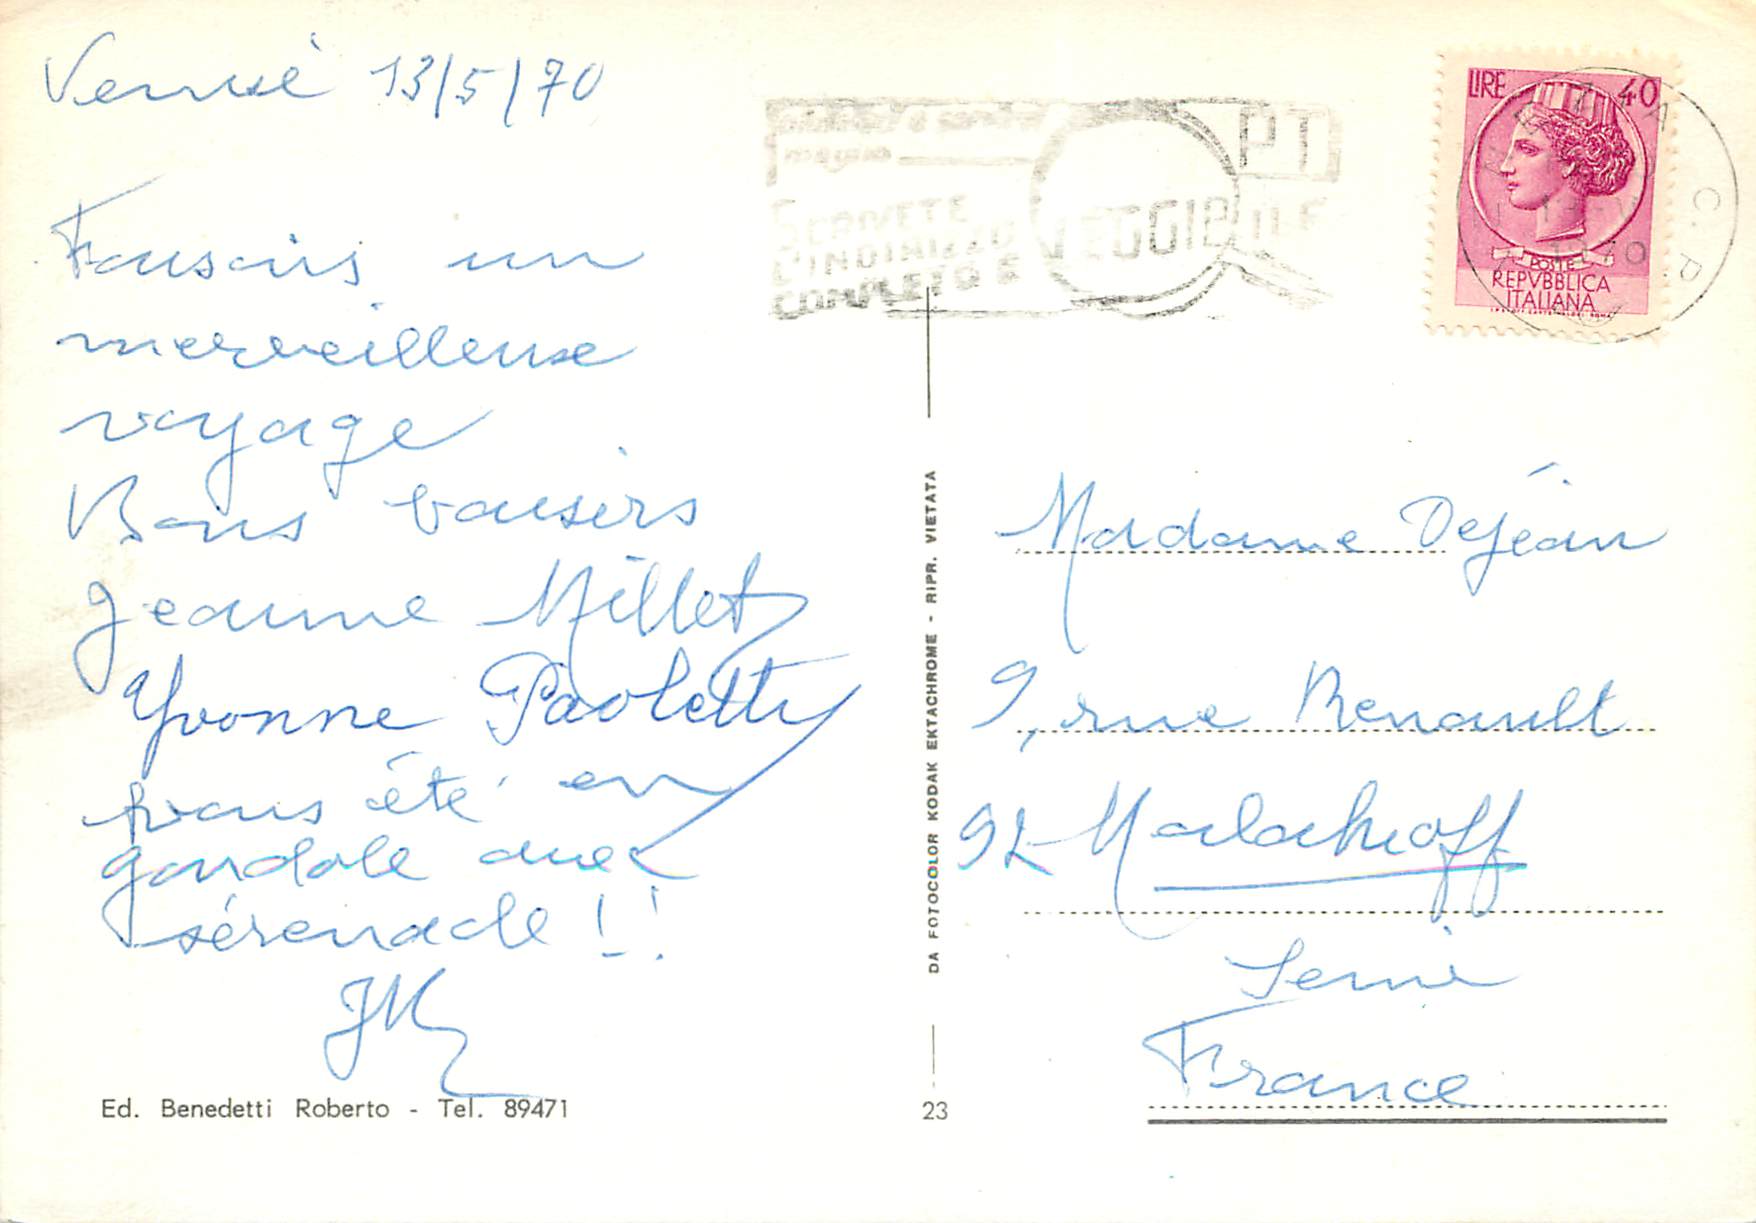 Venise 13/5/70
Faisons un
merveilleuse
voyage
Bons baisers
Jeanne Millet
Yvonne Paoletti
avons été en
gondole avec
sérénade !!
JM
Ed. Benedetti Roberto - Tel. 89471
SCRIVETE
L'INDIRIZZO
COMPLETO E LEGGIBILE
PT
LIRE 40
POSTE
REPVBBLICA
ITALIANA
VENEZIA C.P.
1970
DA FOTOCOLOR KODAK EKTACHROME - RIPR. VIETATA
23
Madame Dejéan
9, rue Renault
92 Malakoff
Seine
France